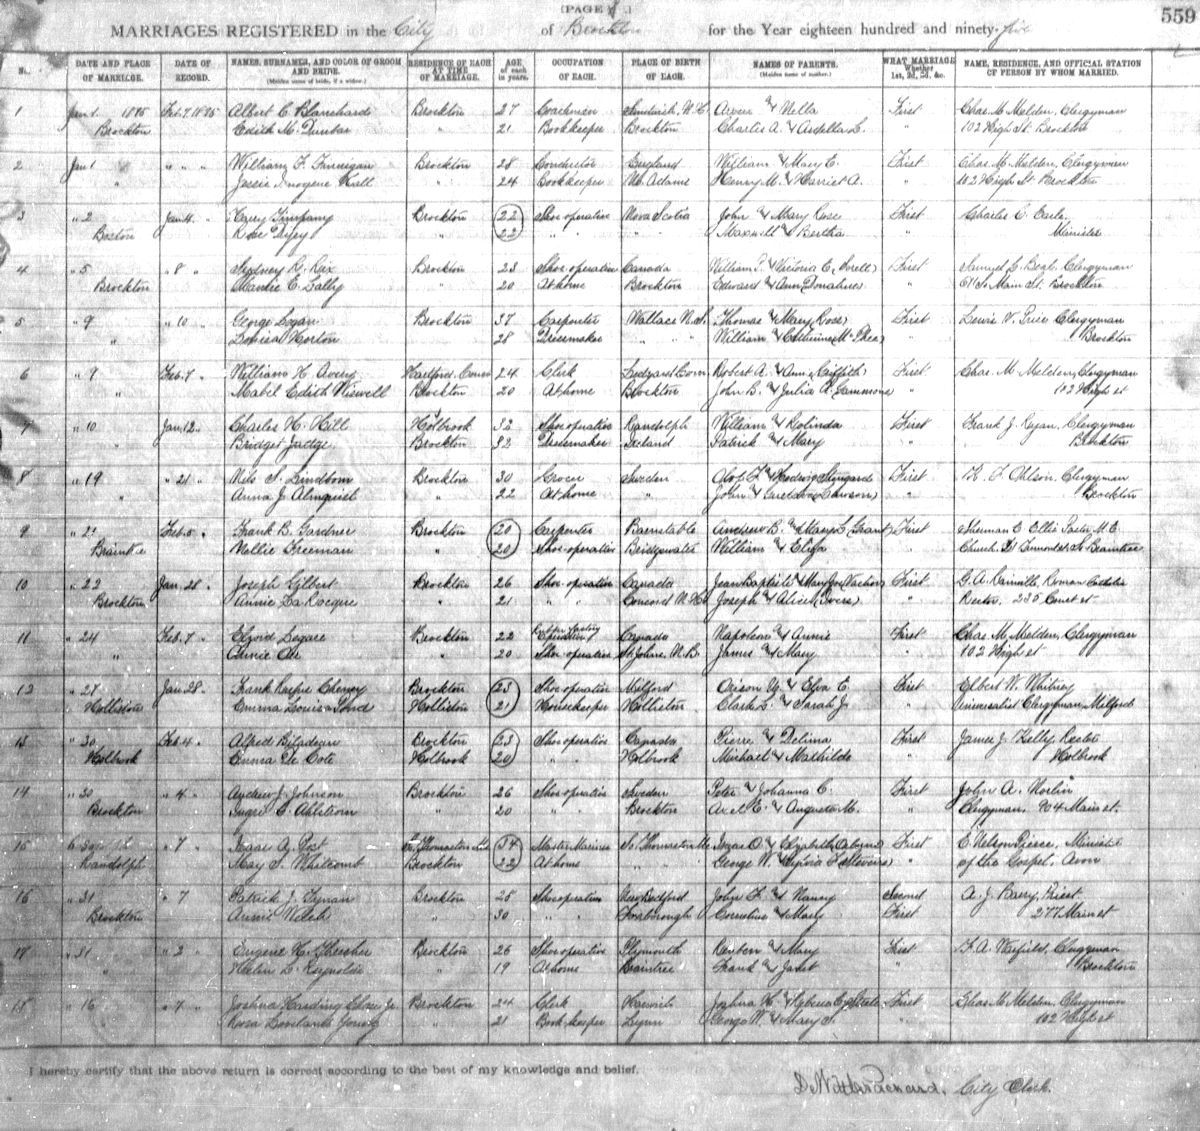 [PAGE 1.]
559
MARRIAGES REGISTERED in the City of Brockton for the Year eighteen hundred and ninety-five
No. DATE AND PLACE OF MARRIAGE. DATE OF RECORD. NAMES, SURNAMES, AND COLOR OF GROOM AND BRIDE. (Maiden name of bride, if a widow.) RESIDENCE OF EACH AT TIME OF MARRIAGE. AGE of each in years. OCCUPATION OF EACH. PLACE OF BIRTH OF EACH. NAMES OF PARENTS. (Maiden name of mother.) WHAT MARRIAGE Whether 1st, 2d, 3d, &c. NAME, RESIDENCE, AND OFFICIAL STATION OF PERSON BY WHOM MARRIED.
1 Jan. 1 1895 Feb. 7, 1895 Albert C. Blanchard Brockton 27 Coachman Sandwich, N.H. & Nella First Chas. M. Melden, Clergyman
Brockton Edith M. Dunbar " 21 Bookkeeper Brockton Charles A. & Ardella L. " 102 High St. Brockton
2 Jan 1 " " " William F. Finnigan Brockton 28 Conductor England William & Mary E. First Chas. M. Melden, Clergyman
" Jessie Imogene Hall " 24 Bookkeeper No. Adams Henry M. & Harriet A. " 102 High St. Brockton
3 " 2 Jan. 4. " Harry Timpany Brockton 22 Shoe operative Nova Scotia John & Mary Rose First Charles C. Earle,
Boston Rose " 22 " " " " Maxwell & Bertha Minister
4 " 5 " 8 " Sydney R. Rix Brockton 23 Shoe operative Canada William P. & Victoria E. First Samuel L. Beal, Clergyman
Brockton Maudie E. " 20 At home Brockton Edward & Ann (Donahue) " So. Main St. Brockton
5 " 9 " 10 " George Logan Brockton 37 Carpenter Wallace N.S. Thomas & Mary (Rose) First Lewis V. Price Clergyman
" Louisa Horton " 28 Dressmaker " " " William & Catherine " Brockton
6 " 9 Feb. 7 " William H. Avery Hartford, Conn 24 Clerk Ledyard Conn. Robert A. & Annie (Griffith) First Chas. M. Melden, Clergyman
" Mabel Edith Wiswell Brockton 20 At home Brockton John B. & Julia A. " 102 High st
7 " 10 Jan. 12 " Charles H. Hill Holbrook 32 Shoe operative Randolph William & Rolinda First Frank J. Ryan, Clergyman
" Bridget Brockton 32 Dressmaker Ireland Patrick & Mary " Brockton
8 " 19 " 21 " Nils S. Lindbom Brockton 30 Grocer Sweden First Ohlson, Clergyman
" Anna J. Almquist " 22 At home " John & " Brockton
9 " 21 Feb. 5 " Frank B. Gardner Brockton 20 Carpenter Barnstable Andrew B. & Mary L. (Grant) First Sherman E. Ellis Pastor M.E.
Braintree Nellie Freeman " 20 Shoe operative Bridgewater William & Eliza " Church
10 " 22 Jan. 28 " Joseph Gilbert Brockton 26 Shoe operative Canada Jean Baptiste & First G. A. Rainville, Roman Catholic
Brockton Annie La Rocque " 21 " " Concord N.H. Joseph & Alice " Rector, 235 Court st
11 " 24 Feb. 7 " Legare Brockton 22 Canada Napoleon & Annie First Chas. M. Melden, Clergyman
" Annie Orr " 20 Shoe operative St. Johns, N.B. James & Mary " 102 High st
12 " 27 Jan. 28 " Frank Cheney Brockton 23 Shoe operative Milford Orison & Elva E. First Elbert W. Whitney
Holliston Emma Louisa Pond Holliston 21 Housekeeper Holliston Clark L. & Sarah J. " Universalist Clergyman, Milford
13 " 30 Feb. 4 " Alfred Bilodeau Brockton 23 Shoe operative Canada Pierre & Delima First James J. Kelly, Rector
Holbrook Emma De Cote Holbrook 20 " " Holbrook Michael & Mathilde " Holbrook
14 " 30 " 4 " Andrew J. Johnson Brockton 26 Shoe operative Sweden Peter & Johanna C. First John A. Norlin
Brockton Ahlstrom " 20 " Brockton Axel E. & Augusta M. " Clergyman, 904 Main st.
15 " 7 " Isaac A. Post Thomaston 34 Master Mariner So. Thomaston Isaac O. & Elizabeth First E. Nelson Pierce, Minister
Randolph May S. Whitcomb Brockton 22 At home " " George W. & Sylvia F. (Stevens) " of the Gospel, Avon
16 " 31 " 7 Patrick J. Tynan Brockton 28 Shoe operative New Bedford John F. & Nancy Second A. J. Barry, Priest.
Brockton Annie Welch " 30 " Foxborough Cornelius & Mary First 277 Main st
17 " 31 " 2 " Eugene H. Brockton 26 Shoe operative Plymouth Reuben & Mary First F. A. Warfield, Clergyman
" Helen L. Reynolds " 19 At home Braintree Frank & Janet " Brockton
18 " 16 " 7 " Joshua Harding Chase Jr Brockton 24 Clerk Harwich Joshua H. & First Chas. M. Melden, Clergyman
" Rosa Young " 21 Bookkeeper Lynn George W. & Mary S. " 102 High st
I hereby certify that the above return is correct according to the best of my knowledge and belief.
DeWitt C. Packard, City Clerk.